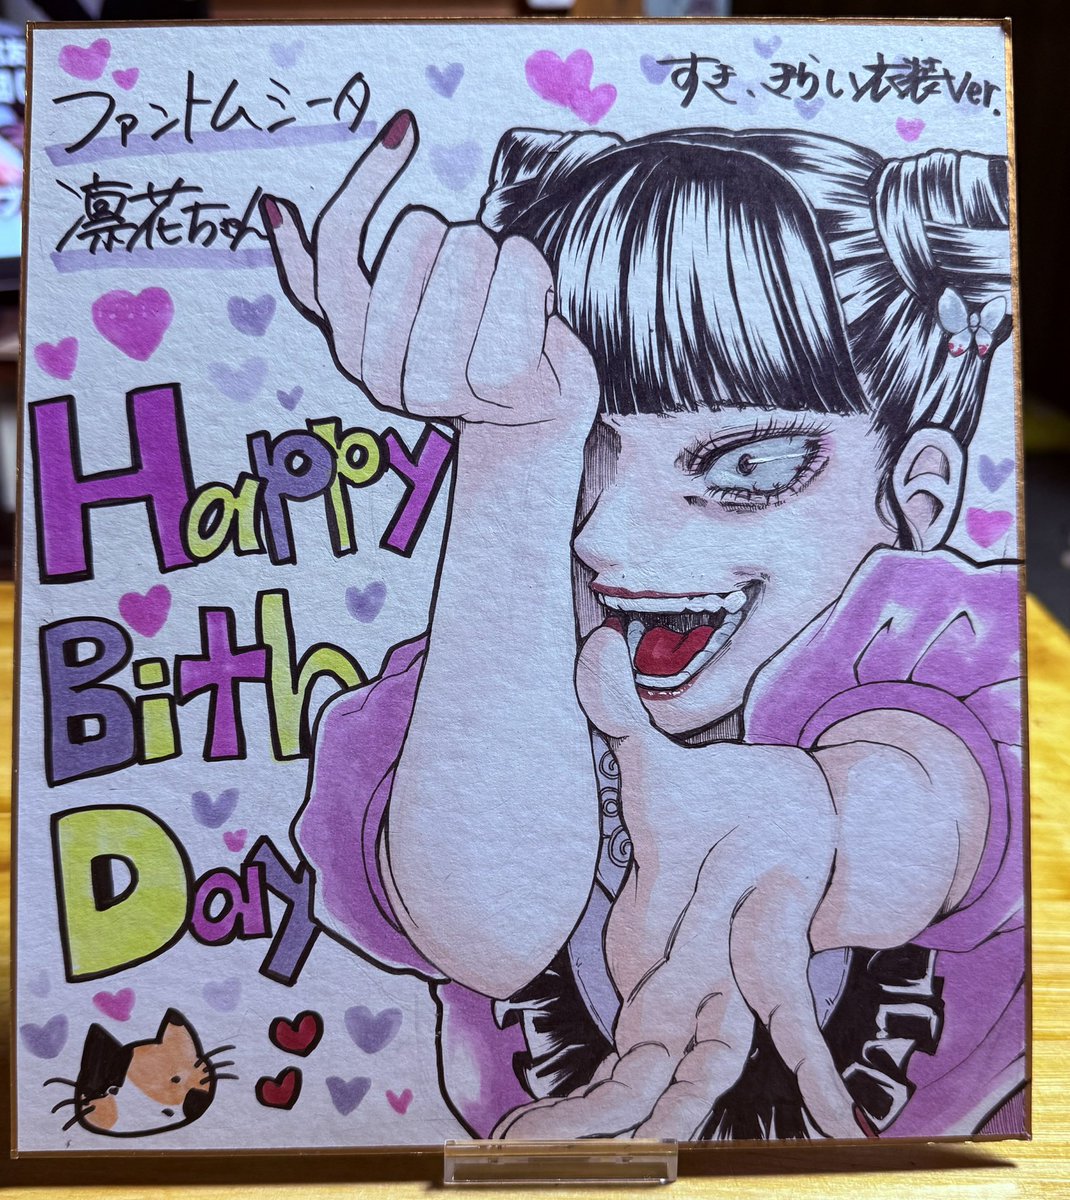 ファントムシータ
凛花ちゃん
すき、きらい衣装ver.
Happy
Bith
Day